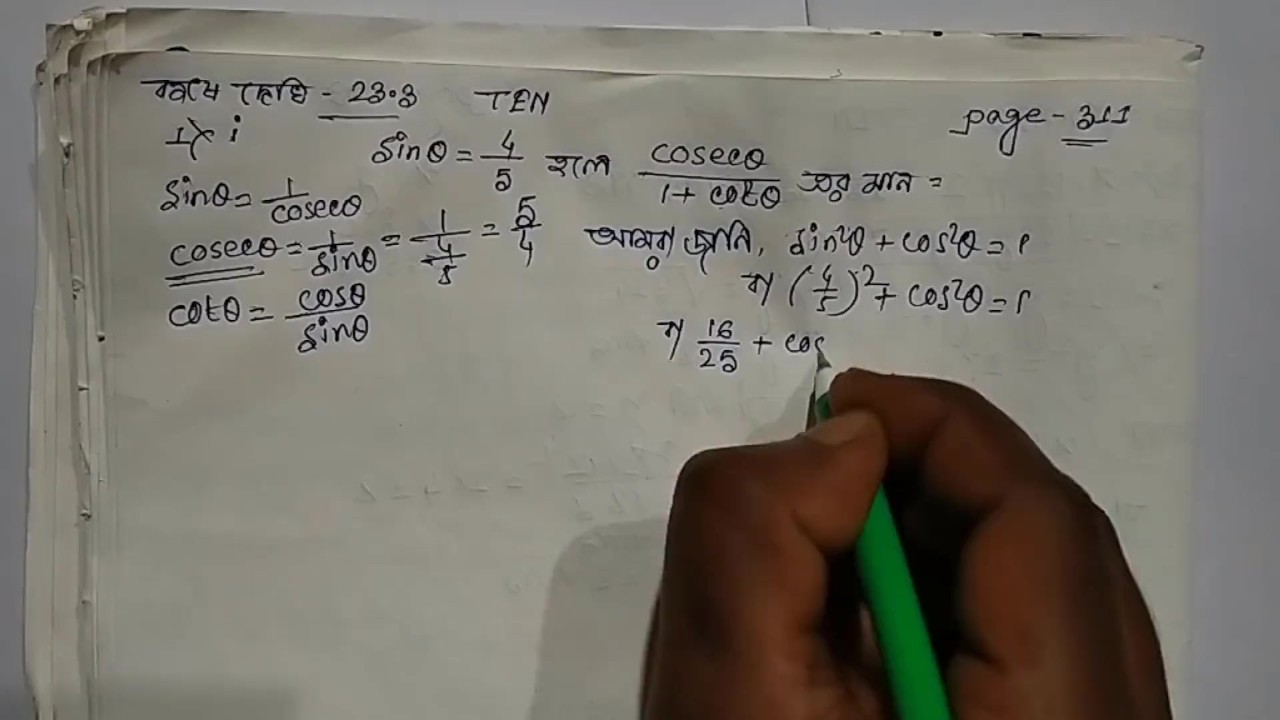 কষে দেখি - 23.3 TEN page - 311
1) i sinθ = 4/5 হলে cosecθ / 1 + cotθ এর মান =
sinθ = 1/cosecθ
cosecθ = 1/sinθ = 1/(4/5) = 5/4 আমরা জানি, sin²θ + cos²θ = 1
বা (4/5)² + cos²θ = 1
cotθ = cosθ/sinθ
বা 16/25 + cos